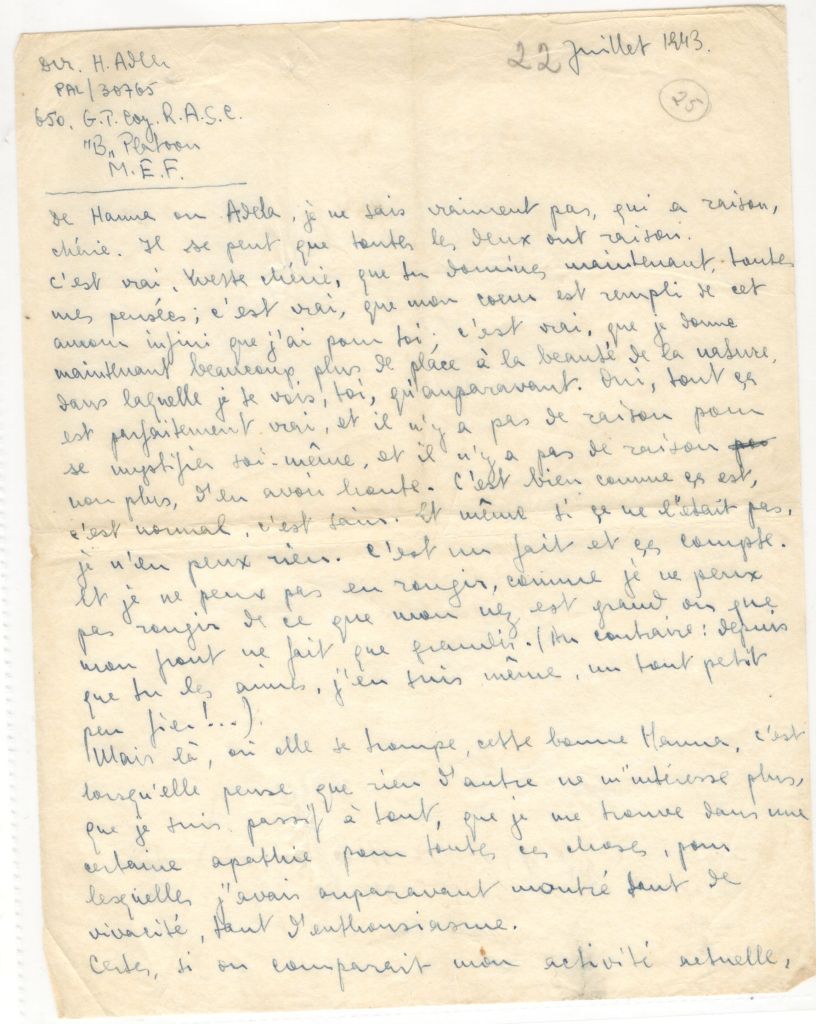 Dvr. H. Adler
PAL/30765
650. G.T. Coy. R.A.S.C.
"B" Platoon
M.E.F.
22 Juillet 1943.
25
de Hanna ou Adela, je ne sais vraiment pas, qui a raison,
chérie. Il se peut que toutes les deux ont raison.
C'est vrai, Yvette chérie, que tu domines maintenant toutes
mes pensées; c'est vrai, que mon coeur est rempli de cet
amour infini que j'ai pour toi; c'est vrai, que je donne
maintenant beaucoup plus de place à la beauté de la nature,
dans laquelle je te vois, toi, qu'auparavant. Oui, tout ça
est parfaitement vrai, et il n'y a pas de raison pour
se mystifier soi-même, et il n'y a pas de raison
non plus, d'en avoir honte. C'est bien comme ça est,
c'est normal, c'est sain. Et même si ça ne l'était pas,
je n'en peux rien. C'est un fait et ça compte.
Et je ne peux pas en rougir, comme je ne peux
pas rougir de ce que mon nez est grand ou que
mon front ne fait que grandir. (Au contraire: depuis
que tu les aimes, j'en suis même, un tout petit
peu fier!...).
Mais là, où elle se trompe, cette bonne Hanna, c'est
lorsqu'elle pense que rien d'autre ne m'intéresse plus,
que je suis passif à tout, que je me trouve dans une
certaine apathie pour toutes ces choses, pour
lesquelles j'avais auparavant montré tant de
vivacité, tant d'enthousiasme.
Certes, si on comparait mon activité actuelle,